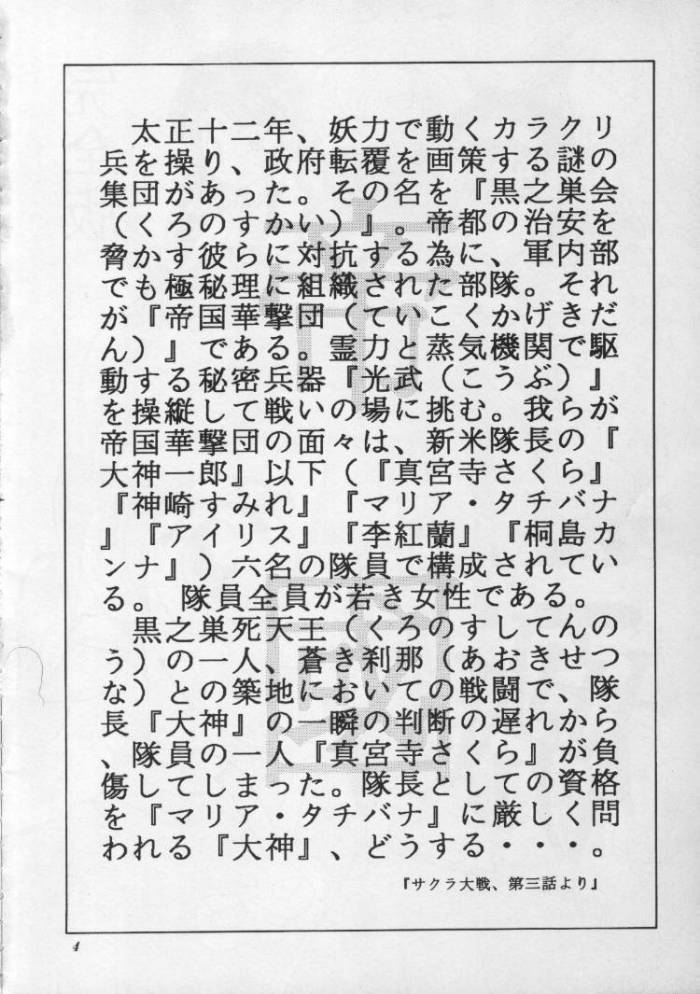 太正十二年、妖力で動くカラクリ
兵を操り、政府転覆を画策する謎の
集団があった。その名を『黒之巣会
（くろのすかい）』。帝都の治安を
脅かす彼らに対抗する為に、軍内部
でも極秘理に組織された部隊。それ
が『帝国華撃団（ていこくかげきだ
ん）』である。霊力と蒸気機関で駆
動する秘密兵器『光武（こうぶ）』
を操縦して戦いの場に挑む。我らが
帝国華撃団の面々は、新米隊長の『
大神一郎』以下（『真宮寺さくら』
『神崎すみれ』『マリア・タチバナ
』『アイリス』『李紅蘭』『桐島カ
ンナ』）六名の隊員で構成されてい
る。　隊員全員が若き女性である。
黒之巣死天王（くろのすしてんの
う）の一人、蒼き刹那（あおきせつ
な）との築地においての戦闘で、隊
長『大神』の一瞬の判断の遅れから
、隊員の一人『真宮寺さくら』が負
傷してしまった。隊長としての資格
を『マリア・タチバナ』に厳しく問
われる『大神』、どうする・・・。
『サクラ大戦、第三話より』
4